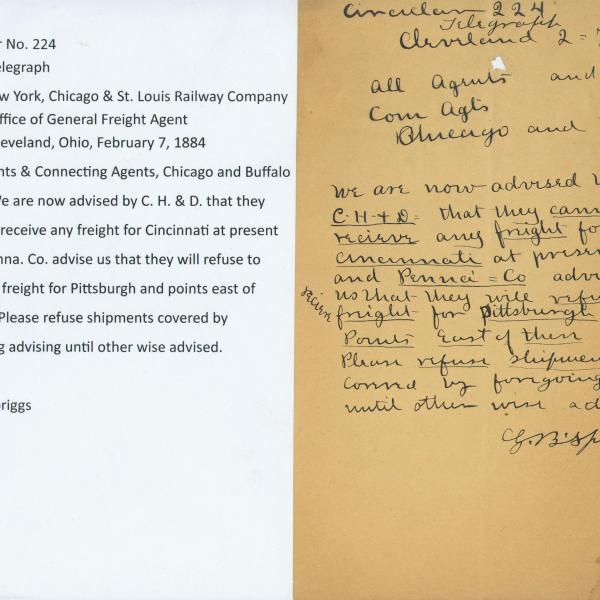 r No. 224
elegraph
w York, Chicago & St. Louis Railway Company
ffice of General Freight Agent
leveland, Ohio, February 7, 1884
nts & Connecting Agents, Chicago and Buffalo
e are now advised by C. H. & D. that they
receive any freight for Cincinnati at present
nna. Co. advise us that they will refuse to
freight for Pittsburgh and points east of
Please refuse shipments covered by
g advising until other wise advised.
riggs
Circular 224
Telegraph
Cleveland 2 =
all Agents and
Com Agts
Chicago and
We are now advised
C.H.+D= that they cann
recieve any frieght fo
cincinnati at presen
and Penna = Co advi
us that they will refus
recieve
frieght for Pittsburgh
Points East of them
Please refuse shipmen
coverd by foregoing
until other wise ad
G.B. Sp